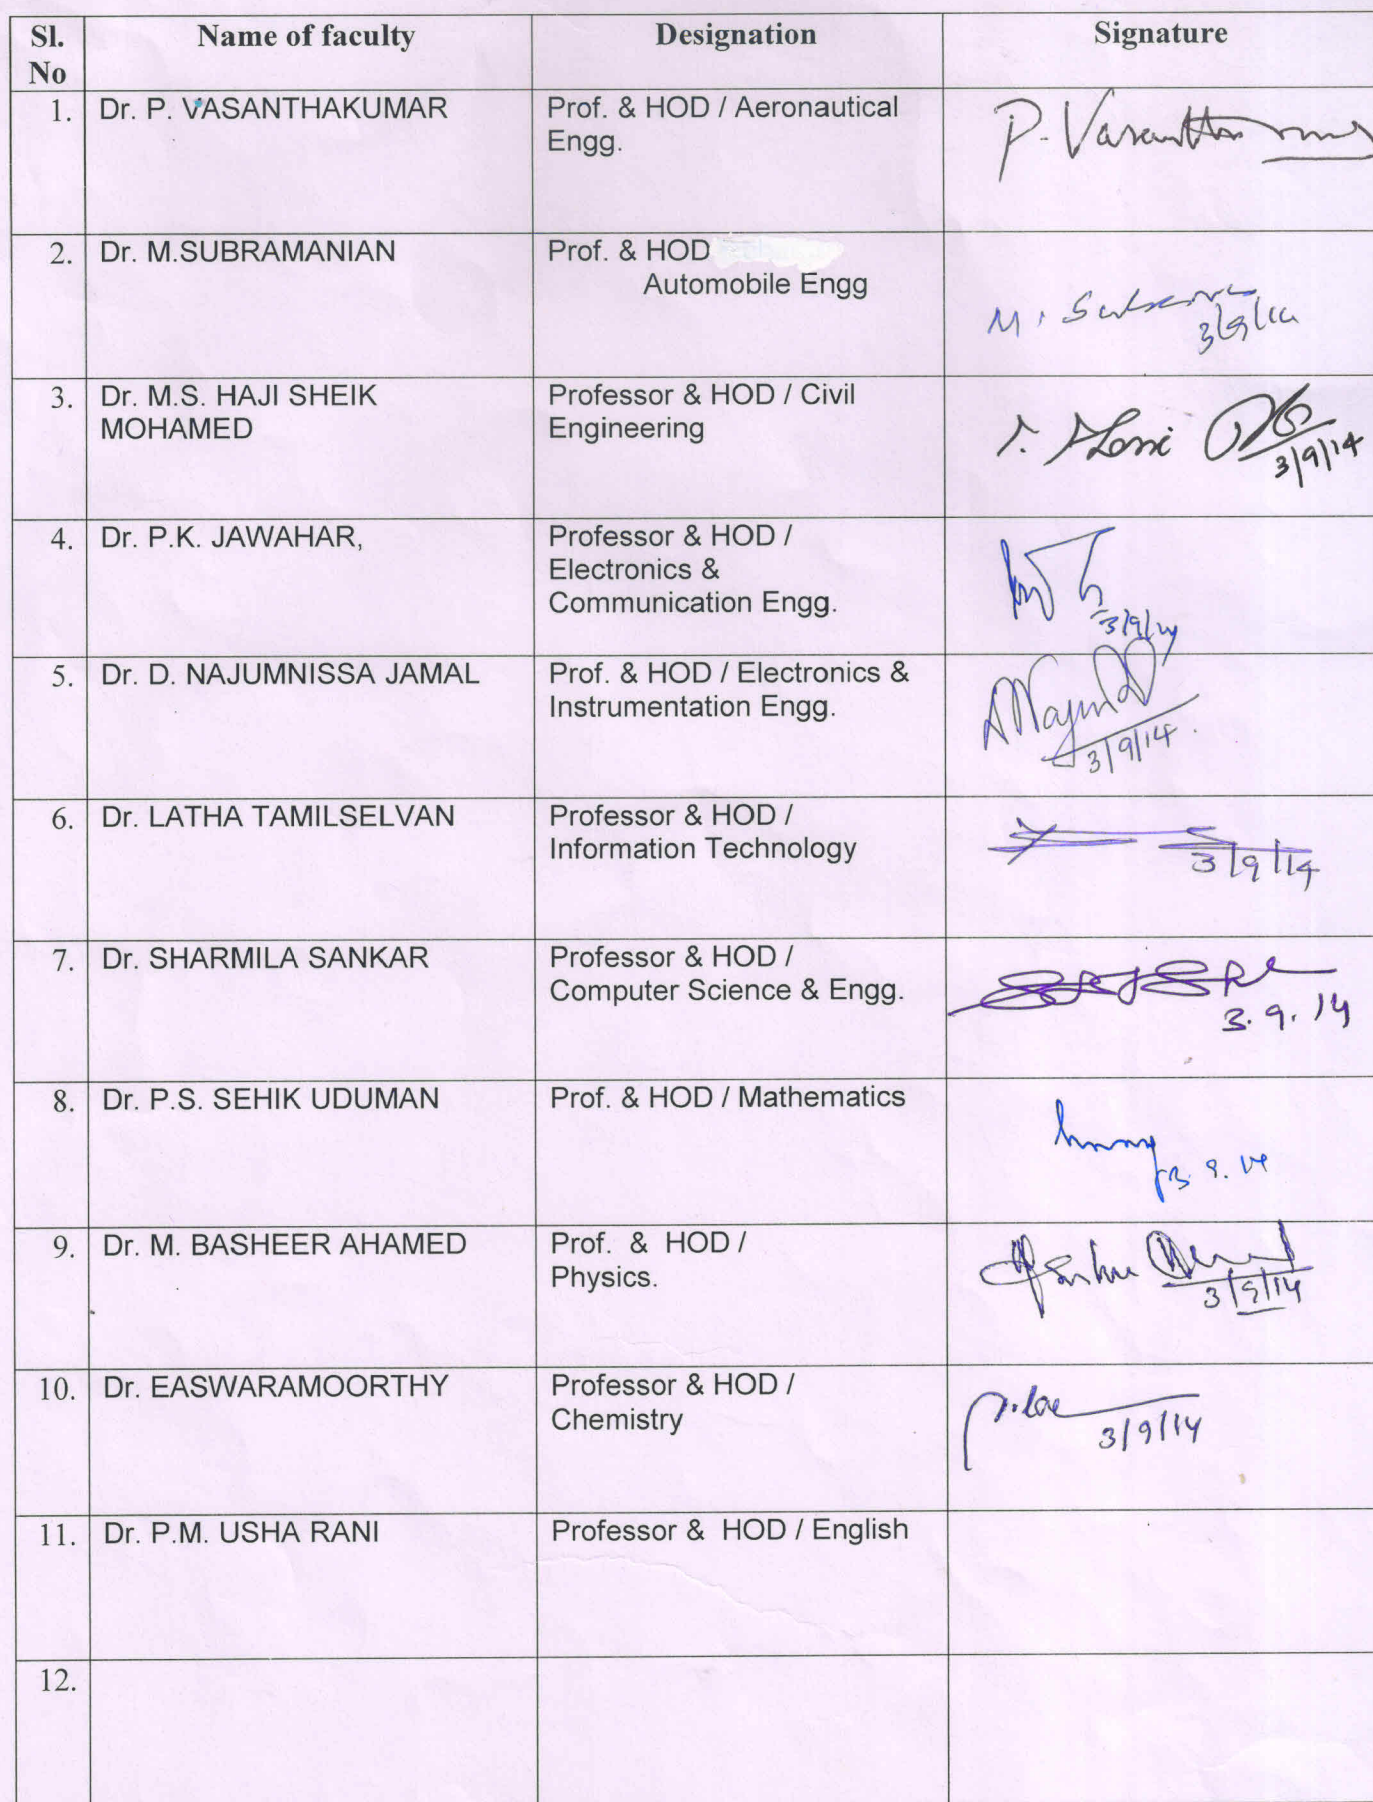 Sl. No Name of faculty Designation Signature
1. Dr. P. VASANTHAKUMAR Prof. & HOD / Aeronautical
Engg.
P. Vasantha
2. Dr. M.SUBRAMANIAN Prof. & HOD
Automobile Engg
M.
3/9/14
3. Dr. M.S. HAJI SHEIK Professor & HOD / Civil
MOHAMED Engineering
3/9/14
4. Dr. P.K. JAWAHAR, Professor & HOD /
Electronics &
Communication Engg.
3/9/14
5. Dr. D. NAJUMNISSA JAMAL Prof. & HOD / Electronics &
Instrumentation Engg.
3/9/14
6. Dr. LATHA TAMILSELVAN Professor & HOD /
Information Technology
3/9/14
7. Dr. SHARMILA SANKAR Professor & HOD /
Computer Science & Engg.
3.9.14
8. Dr. P.S. SEHIK UDUMAN Prof. & HOD / Mathematics
3.9.14
9. Dr. M. BASHEER AHAMED Prof. & HOD /
Physics.
3/9/14
10. Dr. EASWARAMOORTHY Professor & HOD /
Chemistry
3/9/14
11. Dr. P.M. USHA RANI Professor & HOD / English
12.